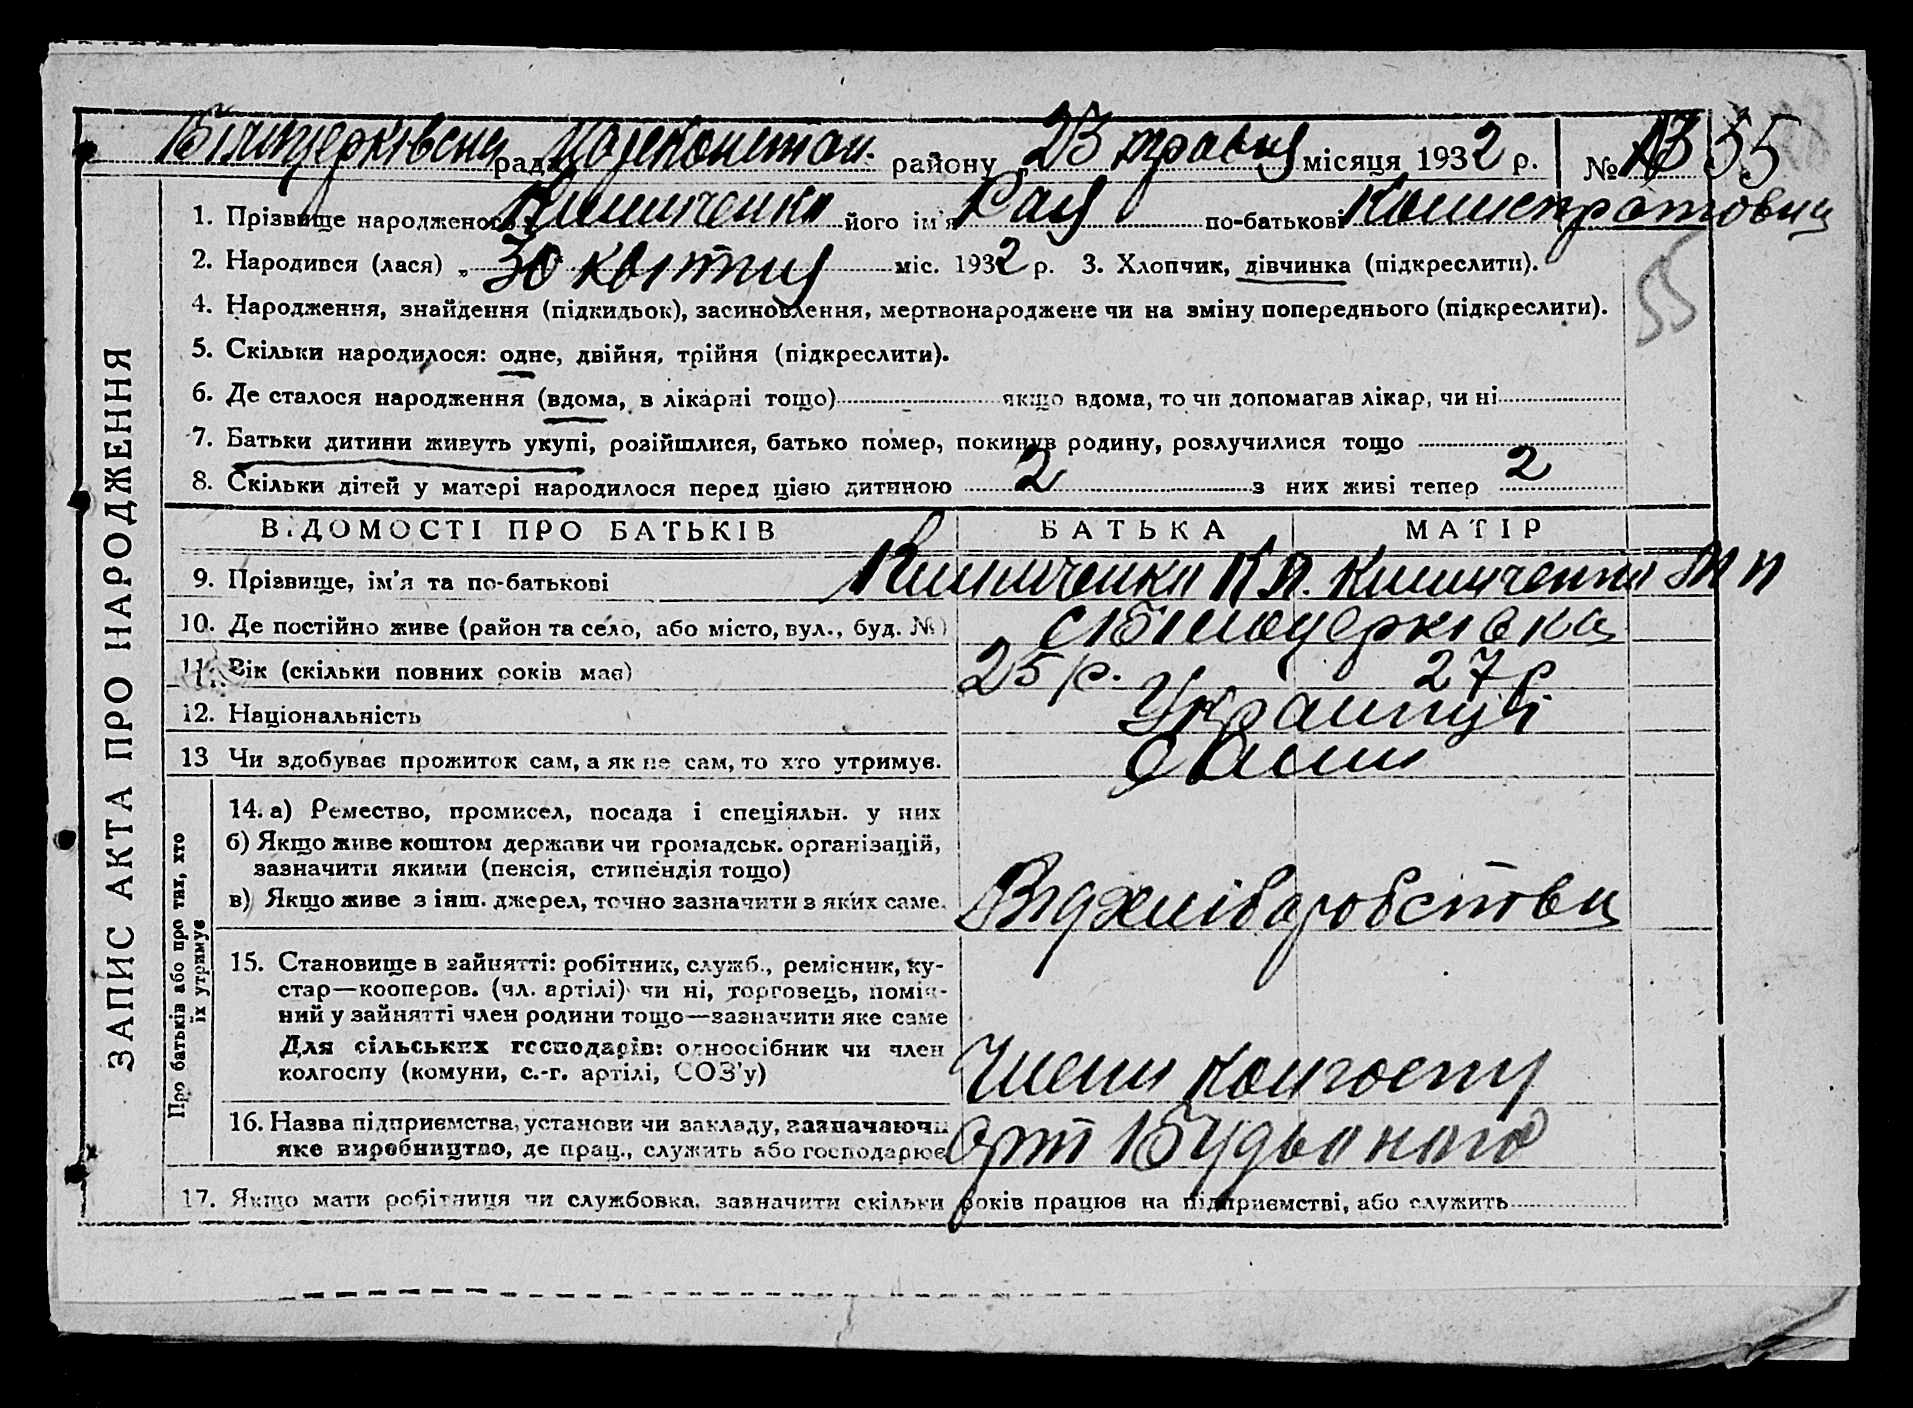 Білицерківська рада району 23 травня місяця 1932 р. № 13 55
1. Прізвище народженого Кишиченко його ім'я Рая по-батькові
2. Народився (лася) „ 30 квітня міс. 1932 р. 3. Хлопчик, дівчинка (підкреслити).
55
4. Народження, знайдення (підкидьок), засиновлення, мертвонароджене чи на зміну попереднього (підкреслити).
5. Скільки народилося: одне, двійня, трійня (підкреслити).
6. Де сталося народження (вдома, в лікарні тощо) якщо вдома, то чи допомагав лікар, чи ні
7. Батьки дитини живуть укупі, розійшлися, батько помер, покинув родину, розлучилися тощо
8. Скільки дітей у матері народилося перед цією дитиною 2 з них живі тепер 2
ВІДОМОСТІ ПРО БАТЬКІВ БАТЬКА МАТІР
9. Прізвище, ім'я та по-батькові Кишиченко К П. Кишиченко М П
10. Де постійно живе (район та село, або місто, вул., буд. №) с Білоцерківка
11. Вік (скільки повних років має) 25 р. 27 р
12. Національність Українці
13 Чи здобуває прожиток сам, а як не сам, то хто утримує. Сами
14. а) Ремество, промисел, посада і спеціяльн. у них
б) Якщо живе коштом держави чи громадськ. організацій,
зазначити якими (пенсія, стипендія тощо)
в) Якщо живе з інш. джерел, точно зазначити з яких саме. Від хліборобства
15. Становище в зайнятті: робітник, служб., ремісник, ку-
стар—кооперов. (чл. артілі) чи ні, торговець, поміч-
ний у зайнятті член родини тощо—зазначити яке саме
Для сільських господарів: одноосібник чи член
колгоспу (комуни, с.-г. артілі, СОЗ'у) Члени колгоспу
16. Назва підприємства, установи чи закладу, зазначаючи
яке виробництво, де прац., служить або господарює Арт Будьоного
17. Якщо мати робітниця чи службовка, зазначити скільки років працює на підприємстві, або служить
ЗАПИС АКТА ПРО НАРОДЖЕННЯ
Про батьків або про тих, хто
їх утримує